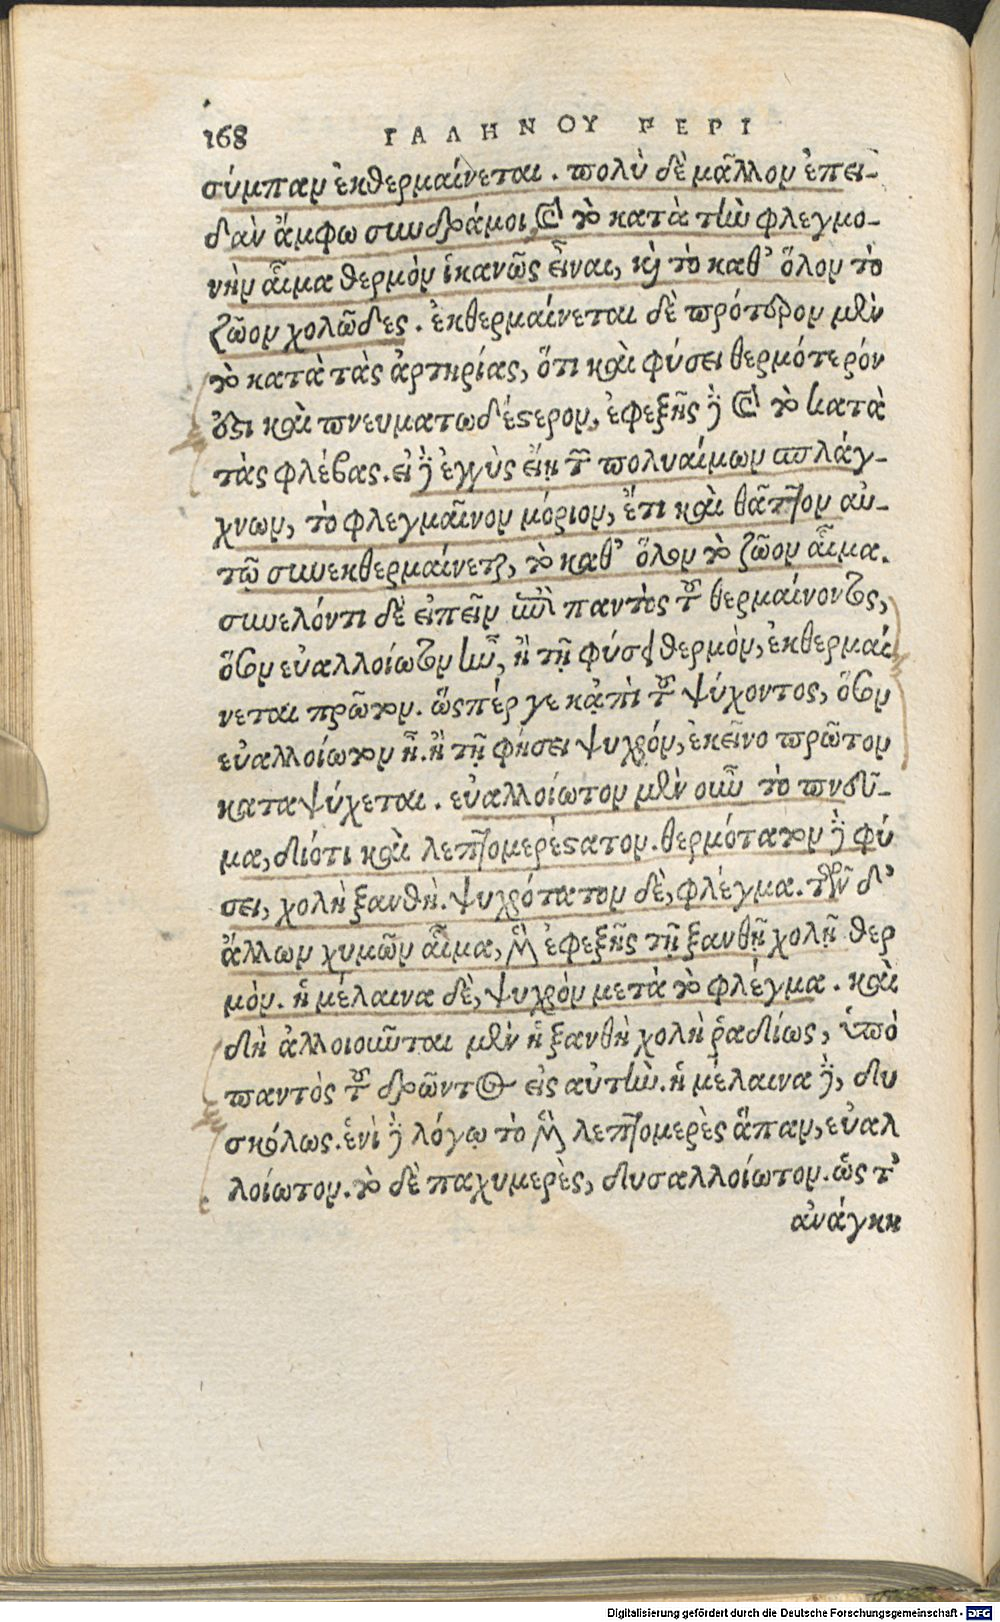 168 ΓΑΛΗΝΟΥ ΠΕΡΙ
σύμπαν ἐκθερμαίνεται. πολὺ δὲ μᾶλλον ἐπει-
δὰν ἄμφω συνδράμοι, καὶ τὸ κατὰ τὴν φλεγμο-
νὴν αἷμα θερμὸν ἱκανῶς εἶναι, καὶ τὸ καθ' ὅλον τὸ
ζῶον χολῶδες. ἐκθερμαίνεται δὲ πρότερον μὲν
τὸ κατὰ τὰς ἀρτηρίας, ὅτι καὶ φύσει θερμότερόν
ἐστι καὶ πνευματωδέστερον, ἐφεξῆς δὲ καὶ τὸ κατὰ
τὰς φλέβας. εἰ δὲ ἐγγὺς εἴη τῶν πολυαίμων σπλάγ-
χνων, τὸ φλεγμαῖνον μόριον, ἔτι καὶ θᾶττον αὐ-
τῷ συνεκθερμαίνεται, τὸ καθ' ὅλον τὸ ζῶον αἷμα.
συνελόντι δὲ εἰπεῖν ὑπὸ παντὸς τοῦ θερμαίνοντος,
ὅσον εὐαλλοίωτον ἦν, ἢ τῇ φύσει θερμὸν, ἐκθερμαί
νεται πρῶτον. ὥσπέρ γε κἀπὶ τοῦ ψύχοντος, ὅσον
εὐαλλοίωτον ᾖ. ἢ τῇ φήσει ψυχρόν, ἐκεῖνο πρῶτον
καταψύχεται. εὐαλλοίωτον μὲν οὖν τὸ πνεῦ-
μα, διότι καὶ λεπτομερέστατον. θερμότατον δὲ φύ
σει, χολὴ ξανθὴ. ψυχρότατον δὲ, φλέγμα. τῶν δ'
ἄλλων χυμῶν αἷμα, μὲν ἐφεξῆς τῇ ξανθῇ χολῇ θερ
μὸν. ἡ μέλαινα δὲ, ψυχρὸν μετὰ τὸ φλέγμα. καὶ
δὴ ἀλλοιοῦται μὲν ἡ ξανθὴ χολὴ ῥαδίως, ὑπὸ
παντὸς τοῦ δρῶντος εἰς αὐτὴν. ἡ μέλαινα δὲ, δυ
σκόλως. ἑνὶ δὲ λόγῳ τὸ μὲν λεπτομερὲς ἅπαν, εὐαλ
λοίωτον. τὸ δὲ παχυμερὲς, δυσαλλοίωτον. ὥς τ'
ἀνάγκη
Digitalisierung gefördert durch die Deutsche Forschungsgemeinschaft - DFG